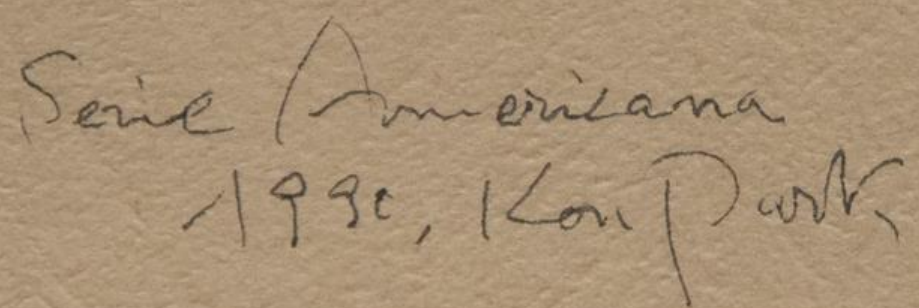 Serie Americana
1990, Kon Park